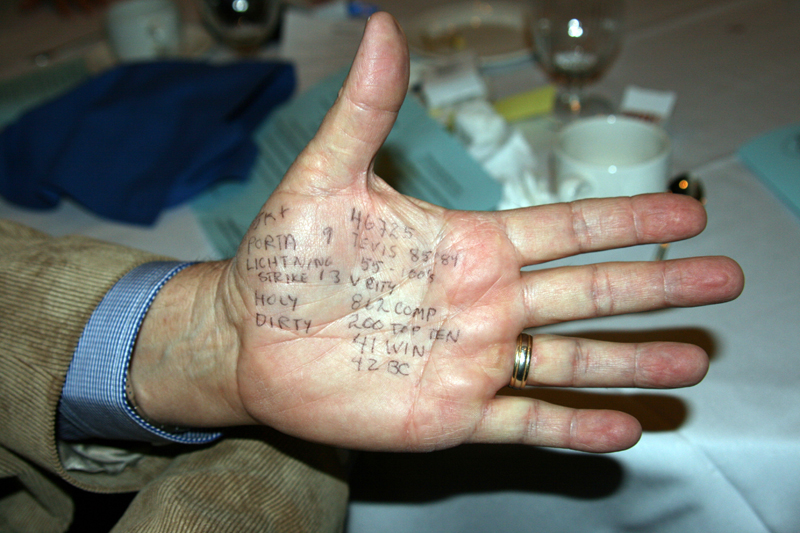 46725
PORTA 9 TEVIS 85/84
LIGHTNING 55-100S
STRIKE 13 VRITY
HOLY 812 COMP
DIRTY 200 TOP TEN
41 WIN
42 BC